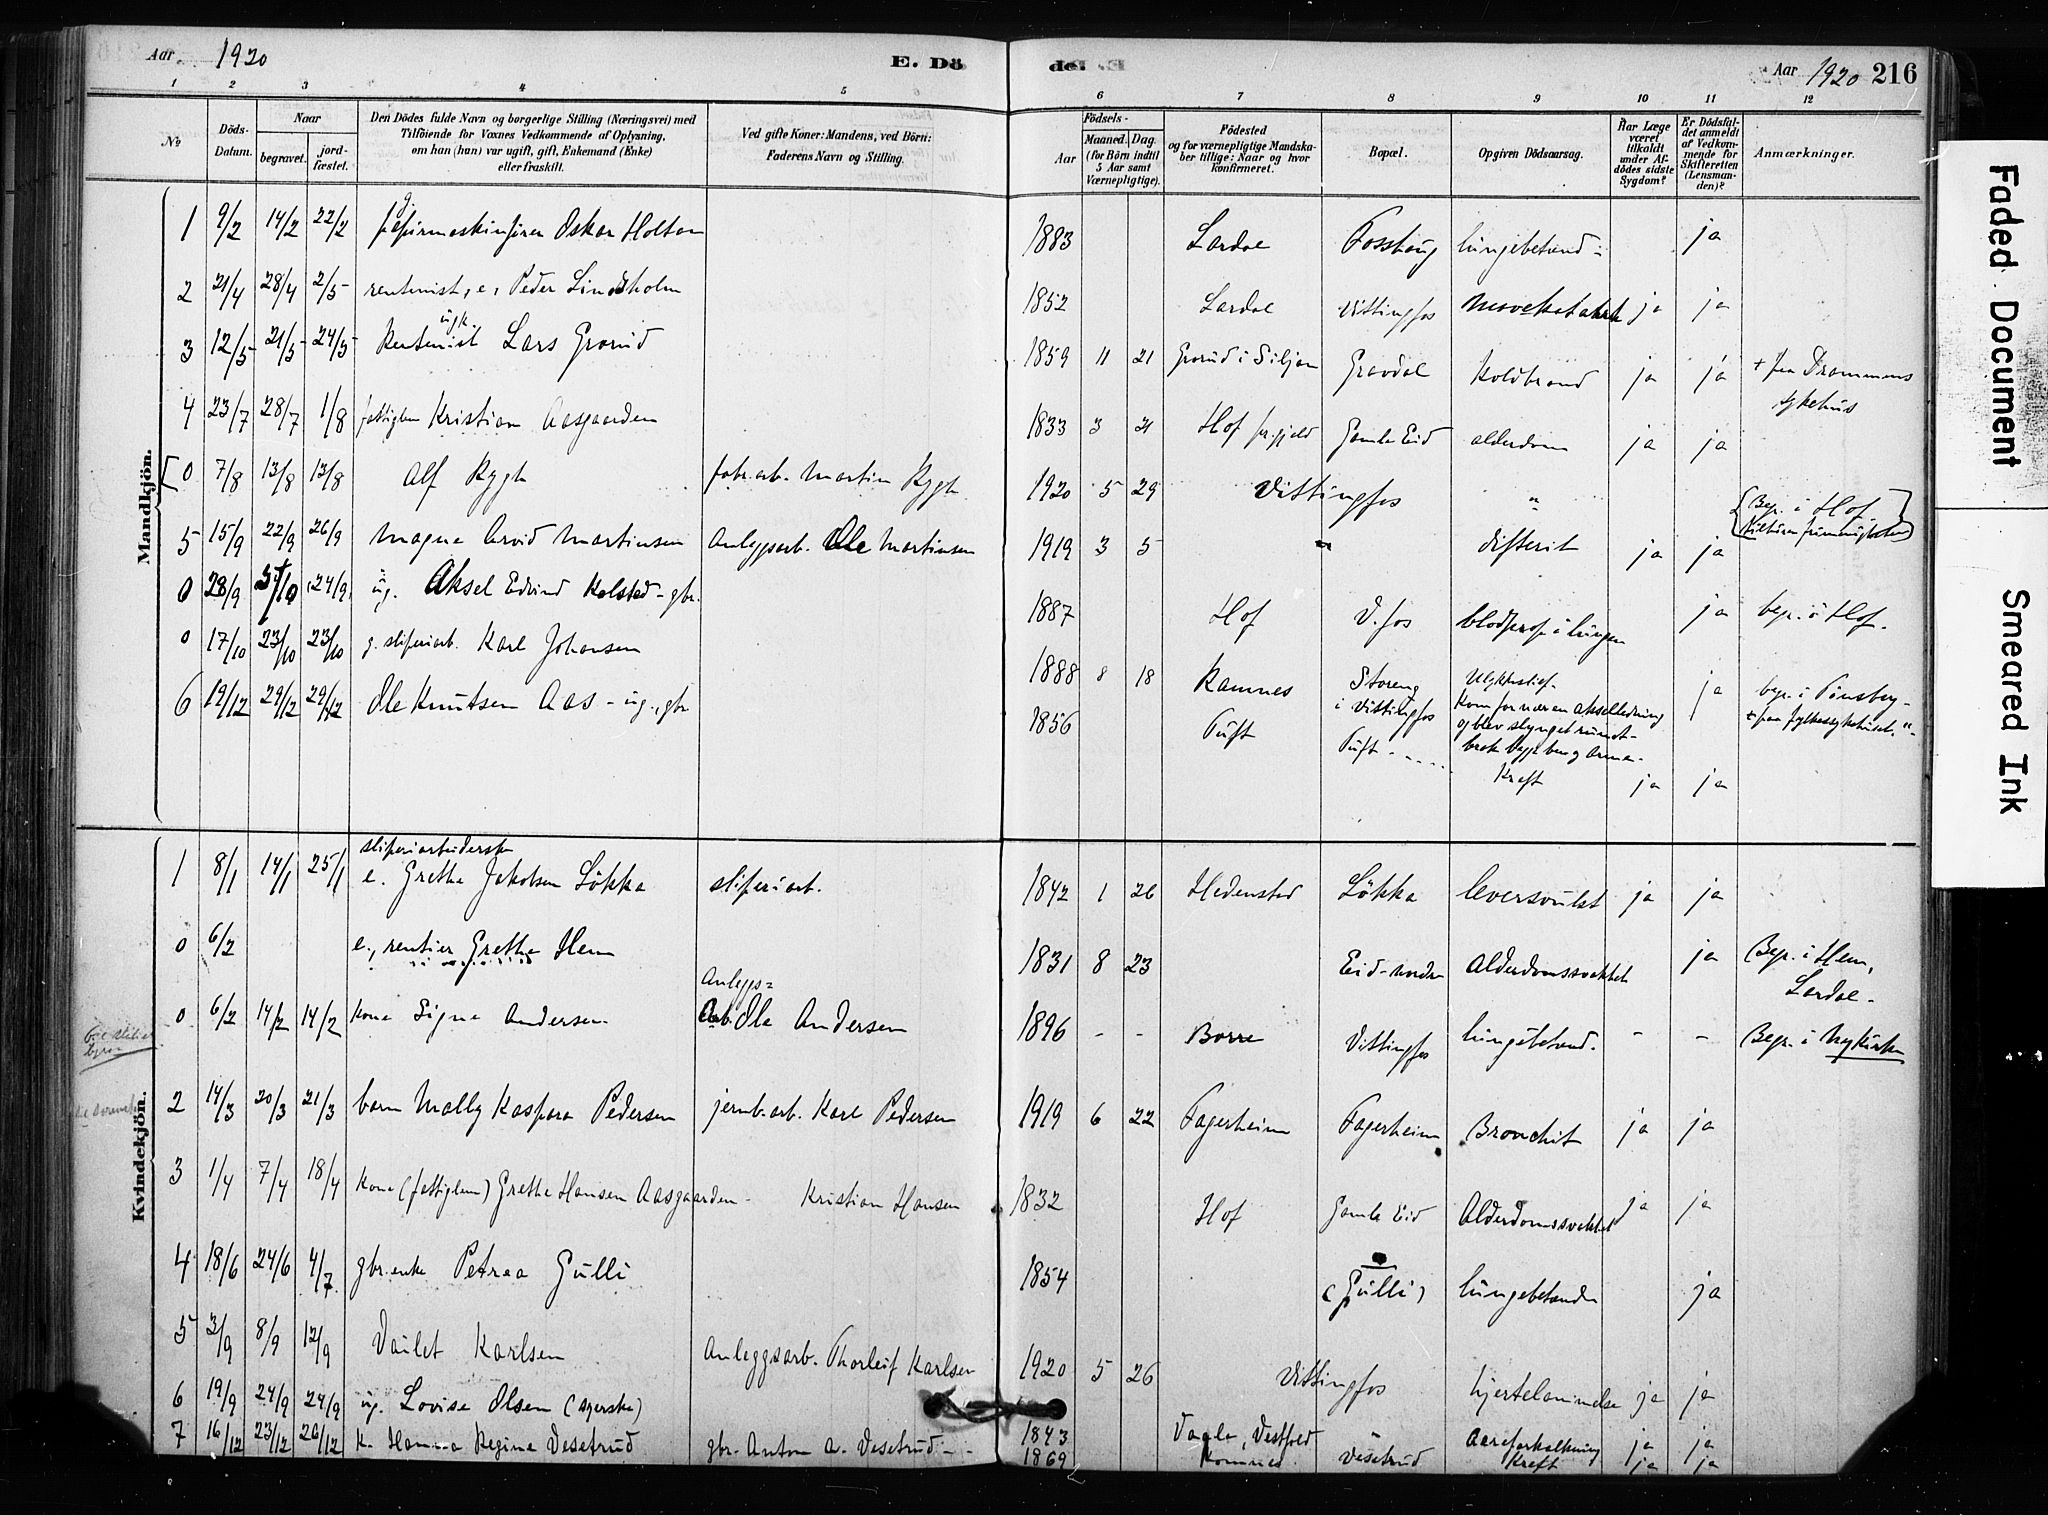 Aar 1920
E. Dö
de.
Aar 1920 216
1 2 3 4 5 6 7 8 9 10 11 12
No
Döds-Datum.
Naar
begravet.
jord-fæstet.
Den Dödes fulde Navn og borgerlige Stilling (Næringsvei) med
Tilföiende for Voxnes Vedkommende af Oplysning,
om han (hun) var ugift, gift, Enkemand (Enke)
eller fraskilt.
Ved gifte Koner: Mandens, ved Börn:
Faderens Navn og Stilling.
Födsels-
Aar
Maaned. Dag.
(for Börn indtil
5 Aar samt
Værnepligtige).
Födested
og for værnepligtige Mandska-
ber tillige: Naar og hvor
konfirmeret.
Bopæl.
Opgiven Dödsaarsag.
Har Læge
været
tilkaldt
under Af-
dödes sidste
Sygdom?
Er Dödsfal-
det anmeldt
af Vedkom-
mende for
Skifteretten
(Lensman-
den)?
Anmærkninger.
Mandkjön.
1 9/2 14/2 22/2 g. papirmaskinfører Oskar Holtan 1883 Lardal Fosshaug lungebetænd- ja
2 21/4 28/4 2/5 rentenist, e, Peder Lindsholm 1852 Lardal Vittingfos ja ja
3 12/5 21/5 24/5 Rentenist ugk. Lars Grorud 1859 11 21 Grorud i Siljan Gravdal Koldbrand ja ja + paa Drammens sykehus
4 23/7 28/7 1/8 fattiglem Kristian Aasgaarden 1833 3 21 Hof prgjeld Gamle Eid alderdom ja ja
0 7/8 13/8 13/8 Alf Rygh fabr.arb. Martin Rygh 1920 5 29 Vittingfos " {Begr. i Hof
5 15/9 22/9 26/9 Magne Arvid Martinsen Anlegsarb. Ole Martinsen 1919 3 5 " difterit ja ja
0 28/9 5/10 24/9 ug. Aksel Edvind Kolstad - gbr. 1887 Hof V.fos blodprop i lungen ja begr. i Hof.
0 17/10 23/10 23/10 g. sliperiarb. Karl Johansen 1888 8 18 Ramnes Storeng i Vittingfos Ulykkestilf. Kom for nær en akselledning og blev slynget rundt- brak begge ben og arme- ja begr. i Tønsberg - + paa fylkessykehuset."
6 19/12 29/12 29/12 Ole Knutsen Aas - ug., gbr 1856 Tuft Tuft - Kreft ja ja
Kvindekjön.
1 8/1 14/1 25/1 sliperiarbeiderske e. Grethe Jakobsen Lökka sliperiarb. 1842 1 26 Hedenstad Lökka leversvulst ja ja
0 6/2 e., rentier Grethe Hem 1831 8 23 Eid-nordre Alderdomssvakhet ja Begr. i Hem, Lardal -
0 6/2 14/2 14/2 kone Signe Andersen Anlegs= arb. Ole Andersen 1896 - - Borre Vittingfos lungebetænd. - - Begr. i Nykirke
2 14/3 20/3 21/3 barn Mally Kaspara Pedersen jernb.arb. Karl Pedersen 1919 6 22 Fagerheim Fagerheim Bronchit ja ja
3 1/4 7/4 18/4 Kone (fattiglem) Grethe Hansen Aasgaarden - Kristian Hansen 1832 Hof Gamle Eid Alderdomssvakhet ja ja
4 18/6 24/6 4/7 gbr.enke Petrea Gulli 1854 (Gulli) lungebetændn ja
5 3/9 8/9 12/9 Vailet Karlsen Anleggsarb. Thorleif Karlsen 1920 5 26 Vittingfos hjertelammelse ja ja
6 19/9 24/9 24/9 ug. Lovise Olsen (syerske) 1843 Vaale, Vestfold Aareforkalkning ja ja
7 16/12 23/12 26/12 k. Hanna Regine Vesetrud gbr. Anton A. Vesetrud - 1869 Komnes Vesetrud Kreft ja ja
Faded Document
Smeared Ink